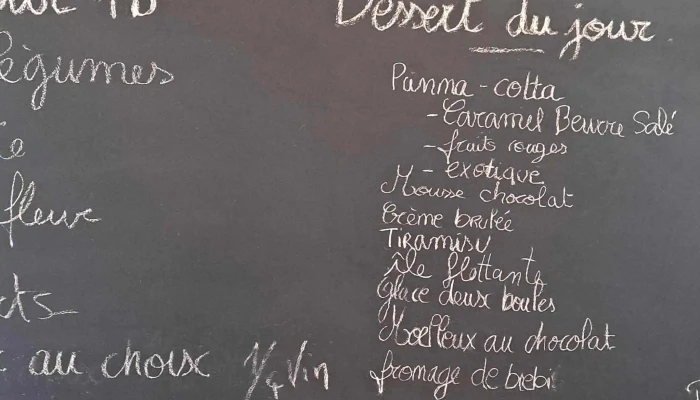 Dessert du jour
légumes
Panna-cotta
- Caramel Beurre Salé
- fruits rouges
- exotique
Mousse chocolat
Crème brulée
Tiramisu
île flottante
fleur
Glace deux boules
Moelleux au chocolat
au choix 1/4 Vin
fromage de brebi